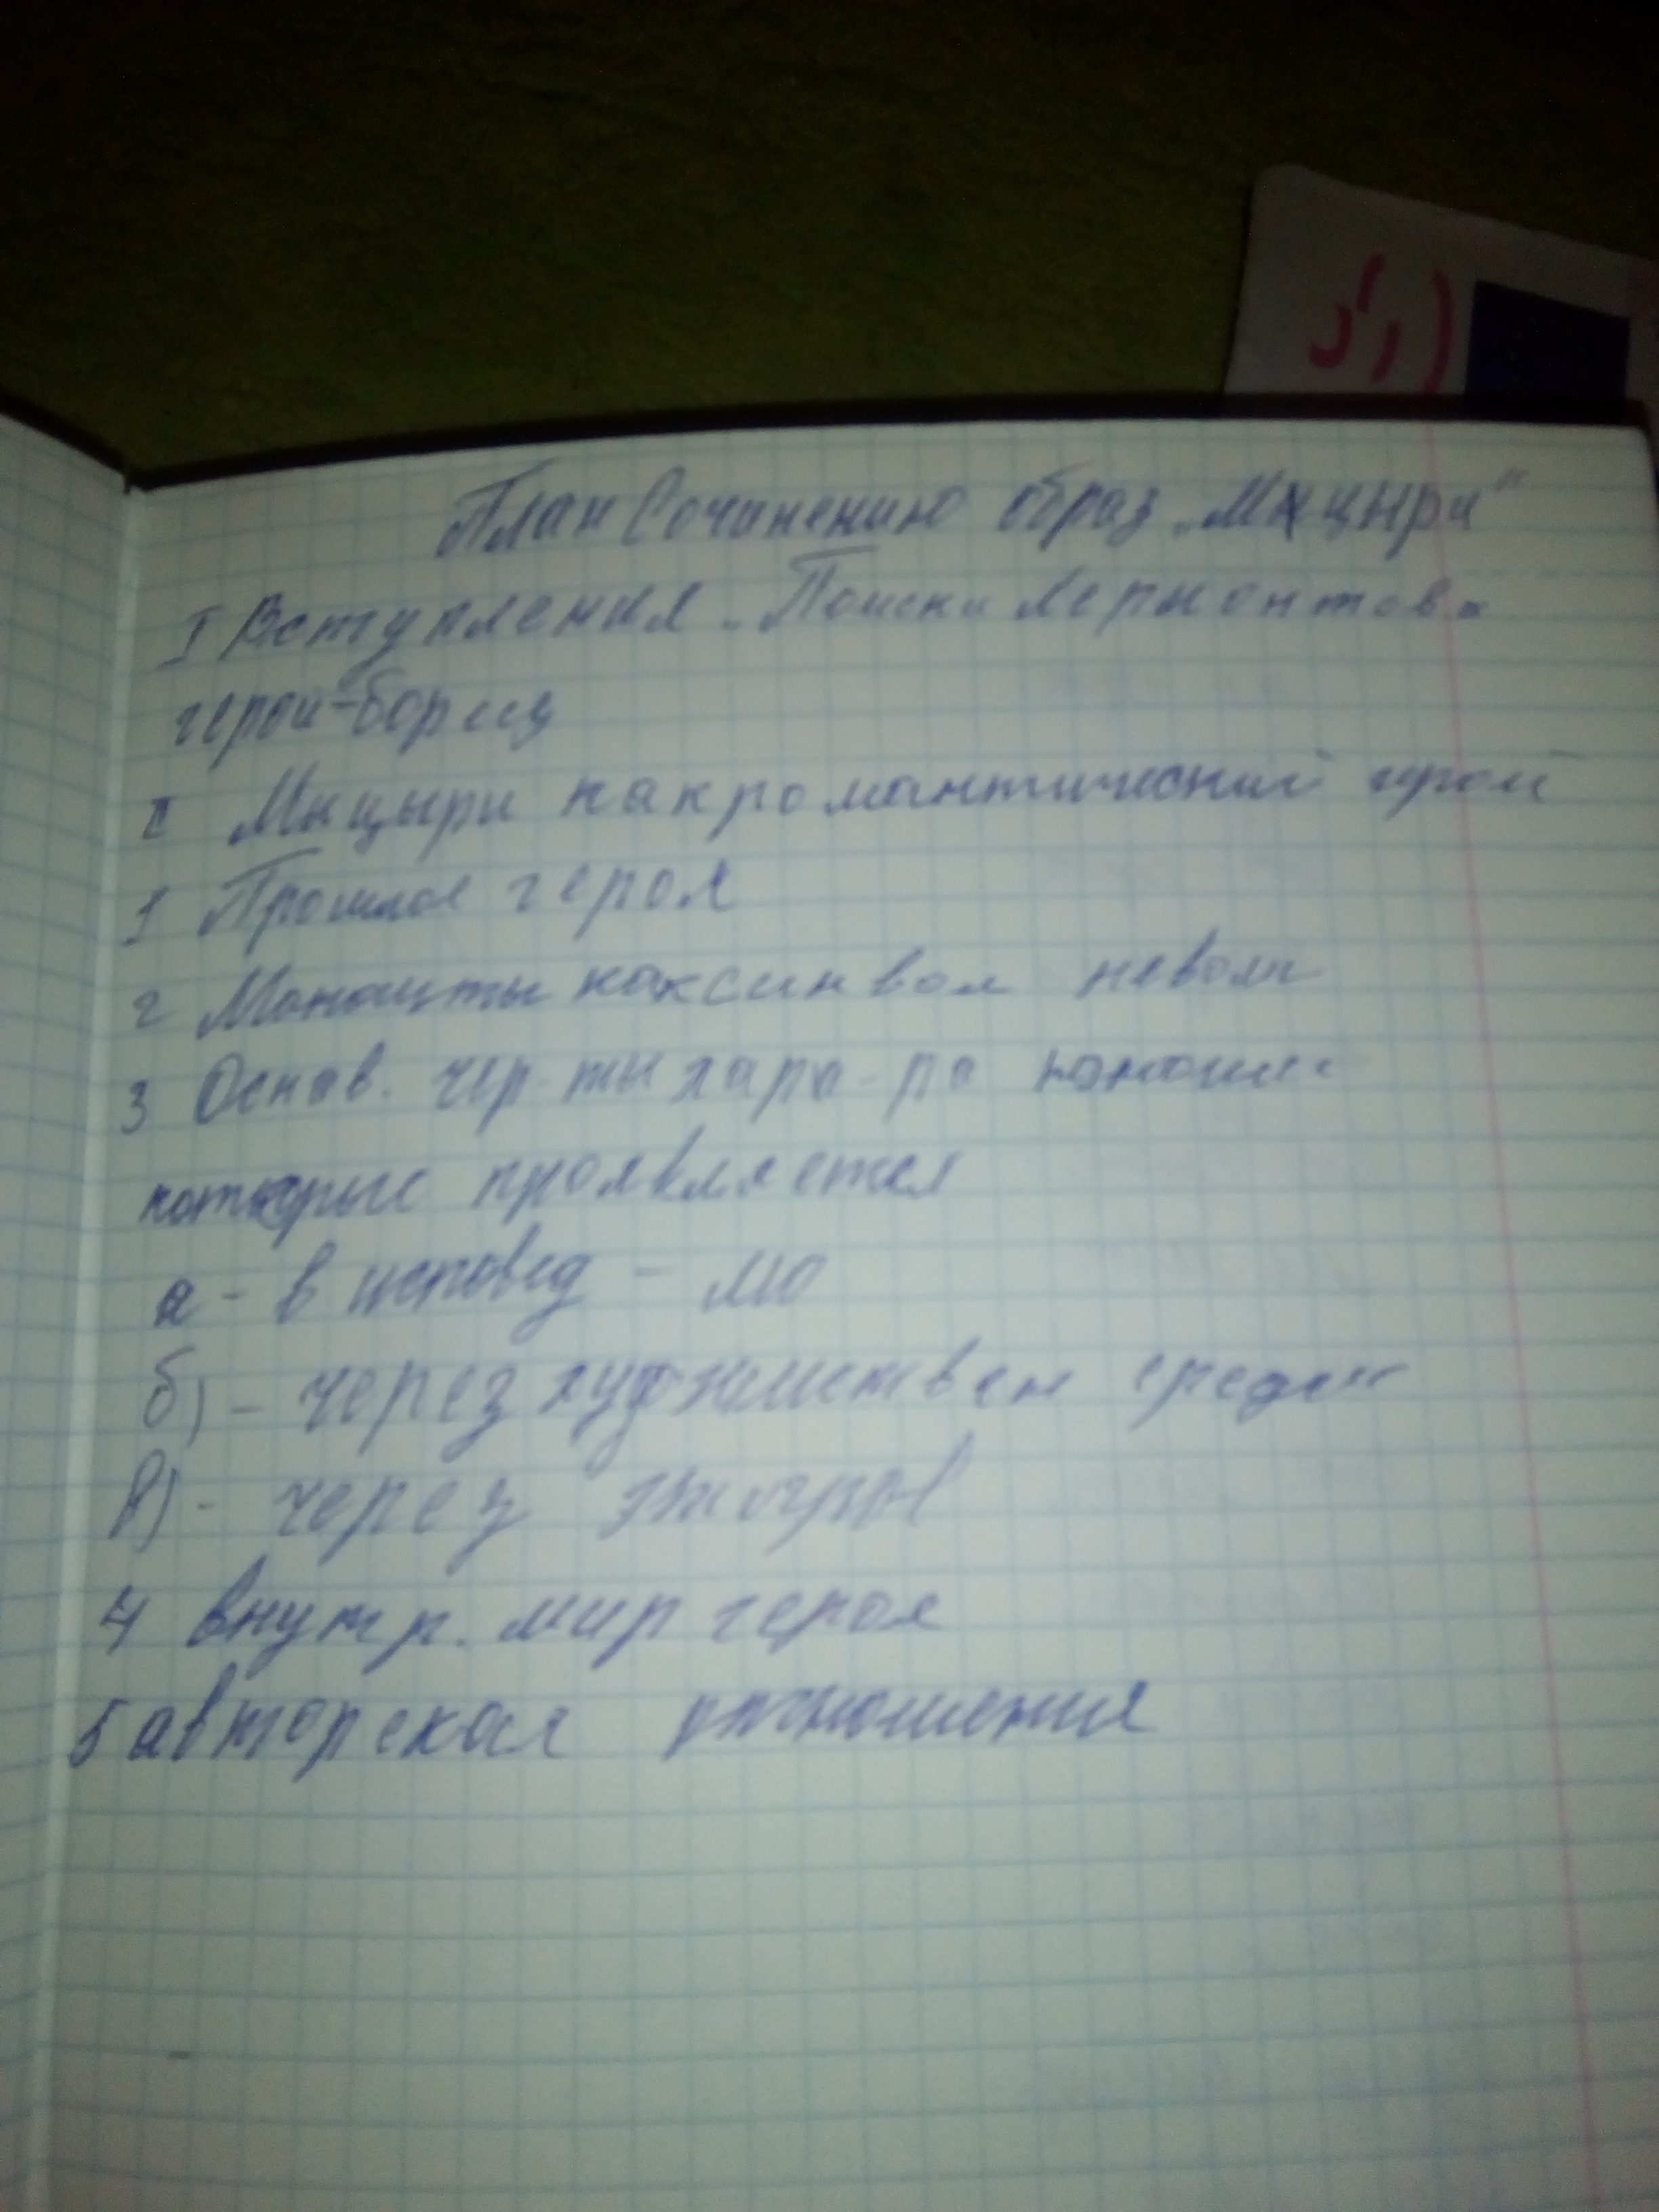 План Сочинению образ „Мцыри"
I Вступления „Поиски Лермонтова
герой-борец
II Мцыри как романтический герой
1 Прошлое героя
2 как символ неволи
3 Основ. чер-ты хара-ра юноши
которые проявляется
а - в исповед - мо
б) - через художествен средс
в) - через
4 внутр. мир героя
5 авторская отношения